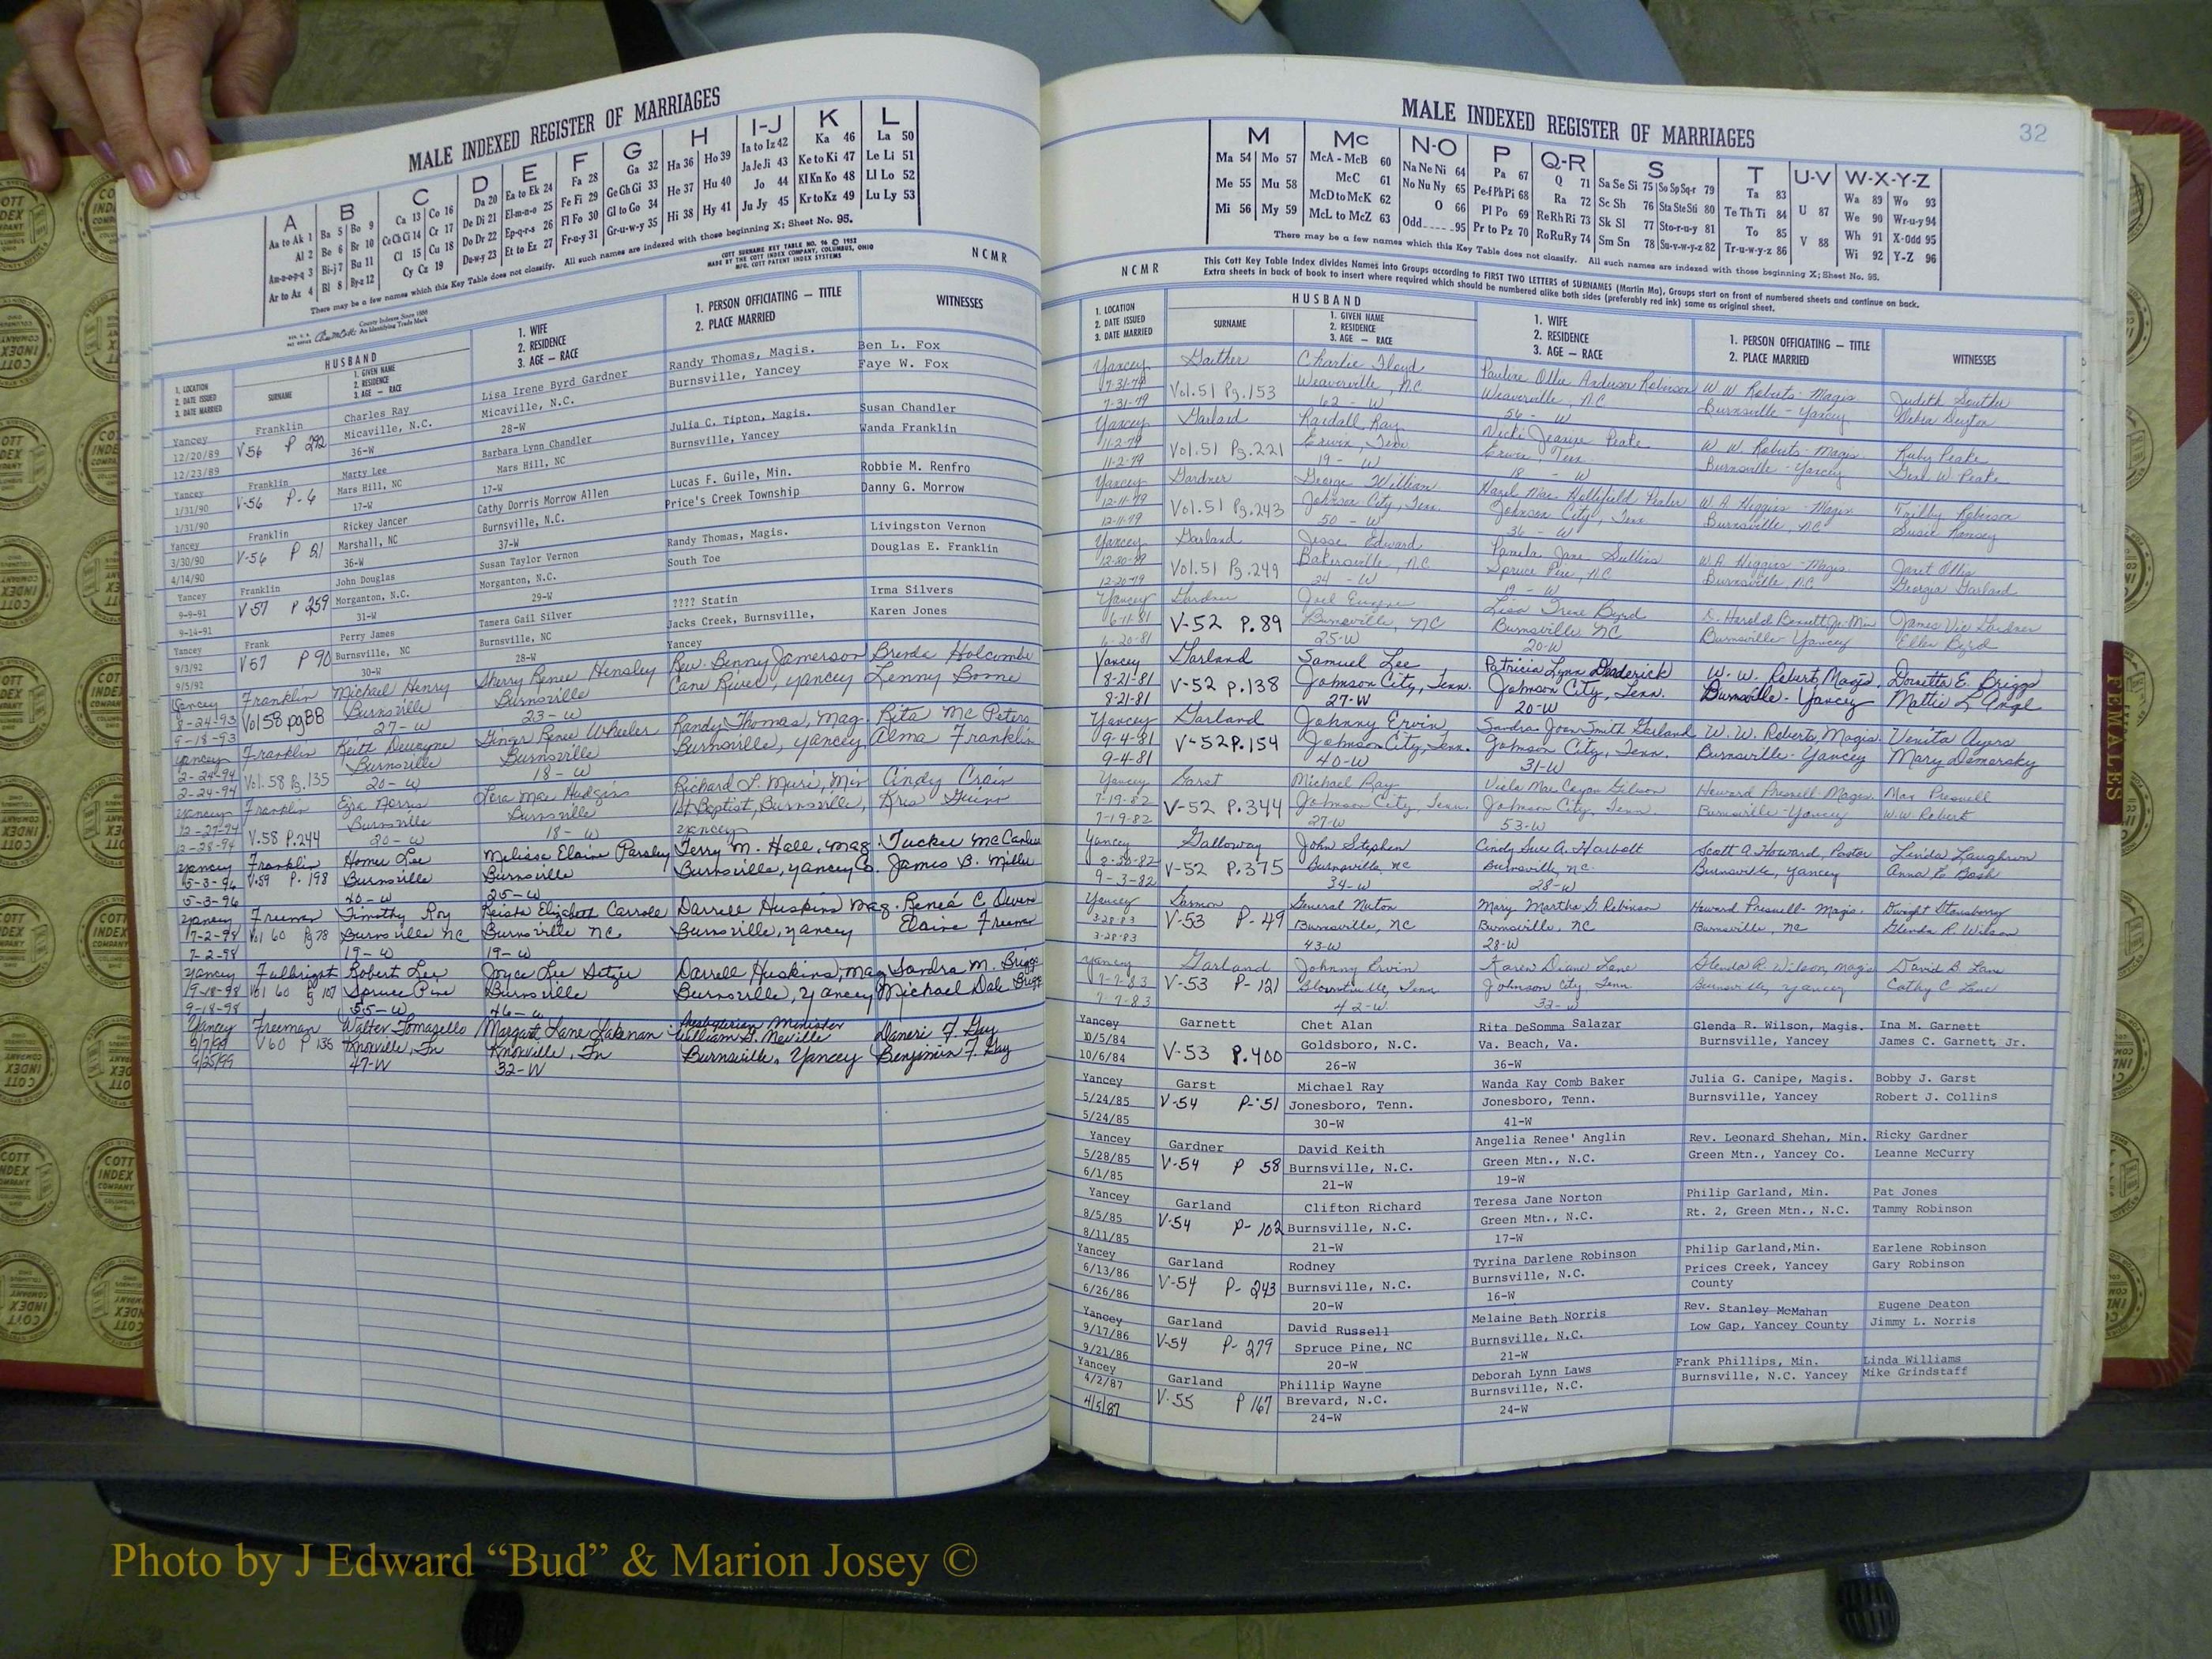 MALE INDEXED REGISTER OF MARRIAGES
A B C D E F G H I-J K L
Aa to Ak 1 Ba 5 Bo 9 Ca 13 Co 16 Da 20 Ea to Ek 24 Fa 28 Ga 32 Ha 36 Ho 39 Ia to Iz 42 Ka 46 La 50
Al 2 Be 6 Br 10 Ce Ch Ci 14 Cr 17 De Di 21 El-m-n-o 25 Fe Fi 29 Ge Gh Gi 33 He 37 Hu 40 Ja Je Ji 43 Ke to Ki 47 Le Li 51
Am-n-o-p-q 3 Bi-j 7 Bu 11 Cl 15 Cu 18 Do Dr 22 Ep-q-r-s 26 Fl Fo 30 Gl to Go 34 Hi 38 Hy 41 Jo 44 Kl Kn Ko 48 Ll Lo 52
Ar to Az 4 Bl 8 By-z 12 Cy Cz 19 Du-w-y 23 Et to Ez 27 Fr-u-y 31 Gr-u-w-y 35 Ju Jy 45 Kr to Kz 49 Lu Ly 53
There may be a few names which this Key Table does not classify. All such names are indexed with those beginning X; Sheet No. 95.
COTT SURNAME KEY TABLE NO. 96 © 1952
MADE BY THE COTT INDEX COMPANY, COLUMBUS, OHIO
MFG. COTT PATENT INDEX SYSTEMS
NCMR
County Indexes Since 1888
An Identifying Trade Mark
HUSBAND
1. LOCATION
2. DATE ISSUED
3. DATE MARRIED
SURNAME
1. GIVEN NAME
2. RESIDENCE
3. AGE — RACE
1. WIFE
2. RESIDENCE
3. AGE — RACE
1. PERSON OFFICIATING — TITLE
2. PLACE MARRIED
WITNESSES
Yancey Franklin Charles Ray Lisa Irene Byrd Gardner Randy Thomas, Magis. Ben L. Fox
12/20/89 V56 P 292 Micaville, N.C. Micaville, N.C. Burnsville, Yancey Faye W. Fox
12/23/89 36-W 28-W
Yancey Franklin Marty Lee Barbara Lynn Chandler Julia C. Tipton, Magis. Susan Chandler
1/31/90 V-56 P-6 Mars Hill, NC Mars Hill, NC Burnsville, Yancey Wanda Franklin
1/31/90 17-W 17-W
Yancey Franklin Rickey Jancer Cathy Dorris Morrow Allen Lucas F. Guile, Min. Robbie M. Renfro
3/30/90 V-56 P 51 Marshall, NC Burnsville, N.C. Price's Creek Township Danny G. Morrow
4/14/90 36-W 37-W
Yancey Franklin John Douglas Susan Taylor Vernon Randy Thomas, Magis. Livingston Vernon
9-9-91 V57 P 259 Morganton, N.C. Morganton, N.C. South Toe Douglas E. Franklin
9-14-91 31-W 29-W
Yancey Frank Perry James Tamera Gail Silver ???? Statin Irma Silvers
9/3/92 V57 P 90 Burnsville, NC Burnsville, NC Jacks Creek, Burnsville, Karen Jones
9/5/92 30-W 28-W Yancey
Yancey Franklin Michael Henry Sherry Renee Hensley Rev. Benny Jamerson Brenda Holcombe
8-24-93 Vol 58 pg 88 Burnsville Burnsville Cane River, Yancey Lenny Boone
9-18-93 27-W 23-W
Yancey Franklin Keith Dewayne Ginger Renee Wheeler Randy Thomas, Mag. Rita McPeters
2-24-94 Vol. 58 Pg. 135 Burnsville Burnsville Burnsville, Yancey Alma Franklin
2-24-94 20-W 18-W
Yancey Franklin Ezra Norris Richard L. Muri, Min Cindy Crain
12-27-94 V.58 P.244 Burnsville Burnsville 1st Baptist, Burnsville, Kris
12-28-94 20-W 18-W Yancey
Yancey Franklin Homer Lee Melissa Elaine Parsley Terry M. Hall, Mag.
5-3-96 V.59 P. 198 Burnsville Burnsville Burnsville, Yancey Co. James B. Miller
5-3-96 20-W 25-W
Yancey Freeman Timothy Roy Keisha Elizabeth Carroll Darrell Huskins Mag. Renea C Owens
7-2-98 Vol 60 Pg 78 Burnsville NC Burnsville NC Burnsville, Yancey Elaine Freeman
7-2-98 19-W 19-W
Yancey Fulbright Robert Lee Joyce Lee Darrell Huskins, Mag Sandra M. Briggs
9-18-98 Vol 60 Pg 107 Spruce Pine Burnsville Burnsville, Yancey Michael Dale Briggs
9-18-98 55-W 46-W
Yancey Freeman Walter Tomasello Margaret Lane Lakeman Presbyterian Minister William G. Neville F. Gay
9/7/99 V60 P 135 Knoxville, Tn Knoxville, Tn Burnsville, Yancey Benjamin F. Gay
9/25/99 47-W 32-W
MALE INDEXED REGISTER OF MARRIAGES
32
M Mc N-O P Q-R S T U-V W-X-Y-Z
Ma 54 Mo 57 McA - McB 60 Na Ne Ni 64 Pa 67 Q 71 Sa Se Si 75 So Sp Sq-r 79 Ta 83 U 87 Wa 89 Wo 93
Me 55 Mu 58 McC 61 No Nu Ny 65 Pe-f Ph Pi 68 Ra 72 Sc Sh 76 Sta Ste Sti 80 Te Th Ti 84 V 88 We 90 Wr-u-y 94
Mi 56 My 59 McD to McK 62 O 66 Pl Po 69 Re Rh Ri 73 Sk Sl 77 Sto-r-u-y 81 To 85 Wh 91 X-Odd 95
McL to McZ 63 Odd 95 Pr to Pz 70 Ro Ru Ry 74 Sm Sn 78 Su-v-w-y-z 82 Tr-u-w-y-z 86 Wi 92 Y-Z 96
There may be a few names which this Key Table does not classify. All such names are indexed with those beginning X; Sheet No. 95.
NCMR
This Cott Key Table Index divides Names into Groups according to FIRST TWO LETTERS of SURNAMES (Martin Ma), Groups start on front of numbered sheets and continue on back.
Extra sheets in back of book to insert where required which should be numbered alike both sides (preferably red ink) same as original sheet.
HUSBAND
1. LOCATION
2. DATE ISSUED
3. DATE MARRIED
SURNAME
1. GIVEN NAME
2. RESIDENCE
3. AGE - RACE
1. WIFE
2. RESIDENCE
3. AGE — RACE
1. PERSON OFFICIATING — TITLE
2. PLACE MARRIED
WITNESSES
Yancey Gaither Charlie Floyd Pauline Ollie Anderson Robinson W. W. Roberts - Magis
7-31-79 Vol. 51 Pg. 153 Weaverville, NC Weaverville, NC Burnsville - Yancey Debra Deyton
7-31-79 62 - W 56 - W
Yancey Garland Randall Ray Vicki Jeanine Peake W. W. Roberts - Magis Ruby Peake
11-2-79 Vol. 51 Pg. 221 Erwin, Tenn Erwin, Tenn. Burnsville - Yancey W. Peake
11-2-79 19 - W 18 - W
Yancey Gardner George William Hazel Mae Hollifield W. A. Higgins - Magis Trilby Robinson
12-11-79 Vol. 51 Pg. 243 Johnson City, Tenn. Johnson City, Tenn Burnsville, NC Susie Ramsey
12-11-79 50 - W 36 - W
Yancey Garland Jesse Edward Pamela Jane Sullins W. A. Higgins - Magis. Janet Ollis
12-20-79 Vol. 51 Pg. 249 Bakersville, NC Spruce Pine, NC Burnsville, NC Georgia Garland
12-20-79 24 - W 19 - W
Yancey Gardner Joel Eugene Lisa Irene Byrd D. Harold Bennett Jr. Min James Vic Gardner
6-11-81 V-52 P. 89 Burnsville, NC Burnsville NC Burnsville - Yancey Ellen Byrd
6-20-81 25-W 20-W
Yancey Garland Samuel Lee Patricia Lynn Deaderick W. W. Robert, Magis. Doretta E. Briggs
8-21-81 V-52 P.138 Johnson City, Tenn. Johnson City, Tenn. Burnsville - Yancey Mattie L. Angel
8-21-81 27-W 20-W
Yancey Garland Johnny Ervin Sandra Joan Smith Garland W. W. Roberts, Magis. Venita Ayers
9-4-81 V-52 P.154 Johnson City, Tenn. Johnson City, Tenn. Burnsville - Yancey Mary Demorsky
9-4-81 40-W 31-W
Yancey Garst Michael Ray Viola Mae Gibson Howard Presnell - Magis. Max Presnell
7-19-82 V-52 P.344 Johnson City, Tenn. Johnson City, Tenn Burnsville - Yancey W.W. Robert
7-19-82 27-W 53-W
Yancey Galloway John Stephen Cindy Sue A. Harbolt Scott A. Howard, Pastor Linda Laughrun
V-52 P.375 Burnsville, NC Burnsville, NC Burnsville, Yancey Anna E. Bosh
9-3-82 34-W 28-W
Yancey General Mary Martha G. Robinson Howard Presnell - Magis. Dwight Stansberry
3-28-83 V-53 P-49 Burnsville, NC Burnsville, NC Burnsville, NC Glenda R. Wilson
3-28-83 43-W 28-W
Yancey Garland Johnny Ervin Karen Diane Lane Glenda R. Wilson, Magis David B. Lane
7-7-83 V-53 P-121 Tenn Johnson City, Tenn. Burnsville, Yancey Cathy C Lane
7-7-83 42-W 32-W
Yancey Garnett Chet Alan Rita DeSomma Salazar Glenda R. Wilson, Magis. Ina M. Garnett
10/5/84 V-53 P.400 Goldsboro, N.C. Va. Beach, Va. Burnsville, Yancey James C. Garnett, Jr.
10/6/84 26-W 36-W
Yancey Garst Michael Ray Wanda Kay Comb Baker Julia G. Canipe, Magis. Bobby J. Garst
5/24/85 V-54 P-51 Jonesboro, Tenn. Jonesboro, Tenn. Burnsville, Yancey Robert J. Collins
5/24/85 30-W 41-W
Yancey Gardner David Keith Angelia Renee' Anglin Rev. Leonard Shehan, Min. Ricky Gardner
5/28/85 V-54 P 58 Burnsville, N.C. Green Mtn., N.C. Green Mtn., Yancey Co. Leanne McCurry
6/1/85 21-W 19-W
Yancey Garland Clifton Richard Teresa Jane Norton Philip Garland, Min. Pat Jones
8/5/85 V-54 P-102 Burnsville, N.C. Green Mtn., N.C. Rt. 2, Green Mtn., N.C. Tammy Robinson
8/11/85 21-W 17-W
Yancey Garland Rodney Tyrina Darlene Robinson Philip Garland,Min. Earlene Robinson
6/13/86 V-54 P-243 Burnsville, N.C. Burnsville, N.C. Prices Creek, Yancey Gary Robinson
6/26/86 20-W 16-W County
Yancey Garland David Russell Melaine Beth Norris Rev. Stanley McMahan Eugene Deaton
9/17/86 V-54 P-279 Spruce Pine, NC Burnsville, N.C. Low Gap, Yancey County Jimmy L. Norris
9/21/86 20-W 21-W
Yancey Garland Phillip Wayne Deborah Lynn Laws Frank Phillips, Min. Linda Williams
4/2/87 V-55 P 167 Brevard, N.C. Burnsville, N.C. Burnsville, N.C. Yancey Mike Grindstaff
4/5/87 24-W 24-W
FEMALES
COTT
INDEX
COMPANY
Photo by J Edward “Bud” & Marion Josey ©